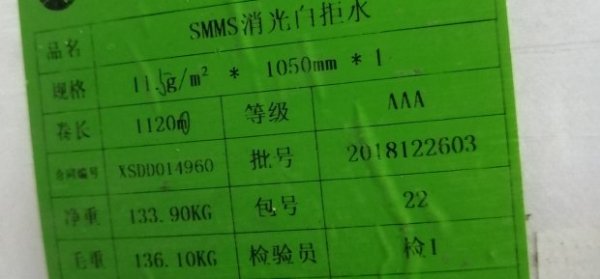 品名 SMMS消光白拒水
规格 11.5g/m² * 1050mm * 1
卷长 1120m 等级 AAA
合同编号 XSDD014960 批号 2018122603
净重 133.90KG 包号 22
毛重 136.10KG 检验员 检1